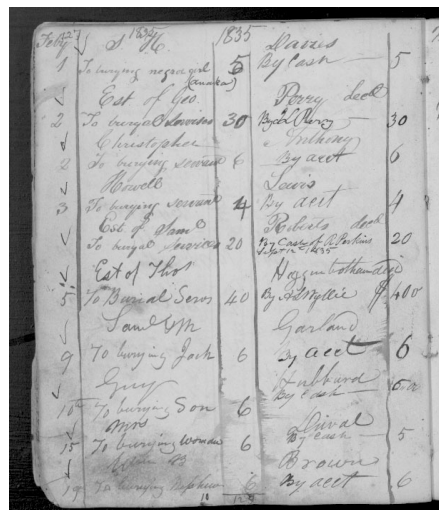 Feby 1835 S H 1835 Davies
1 To burying negro girl 5 By Cash 5
(Anaka)
Est of Geo. Perry decd
2 To burial Services 30 By Perry 30
Christopher Anthony
2 To burying servant 6 By acct 6
Howell Lewis
3 To burying servant 4 By acct 4
Est of Saml Roberts decd
To burial Services 20 By Cash of Perkins 20
Sept 12 1835
Est of Thos Higginbotham decd
5 To Burial Servs 40 By Wyllie $ 40
Saml M Garland
9 To burying Jack 6 By acct 6
Guy Hubbard
10 To burying Son 6 By Cash 6
Mrs Duval
15 To burying Woman 6 By Cash 5
Brown
19 To burying 6 By acct 6